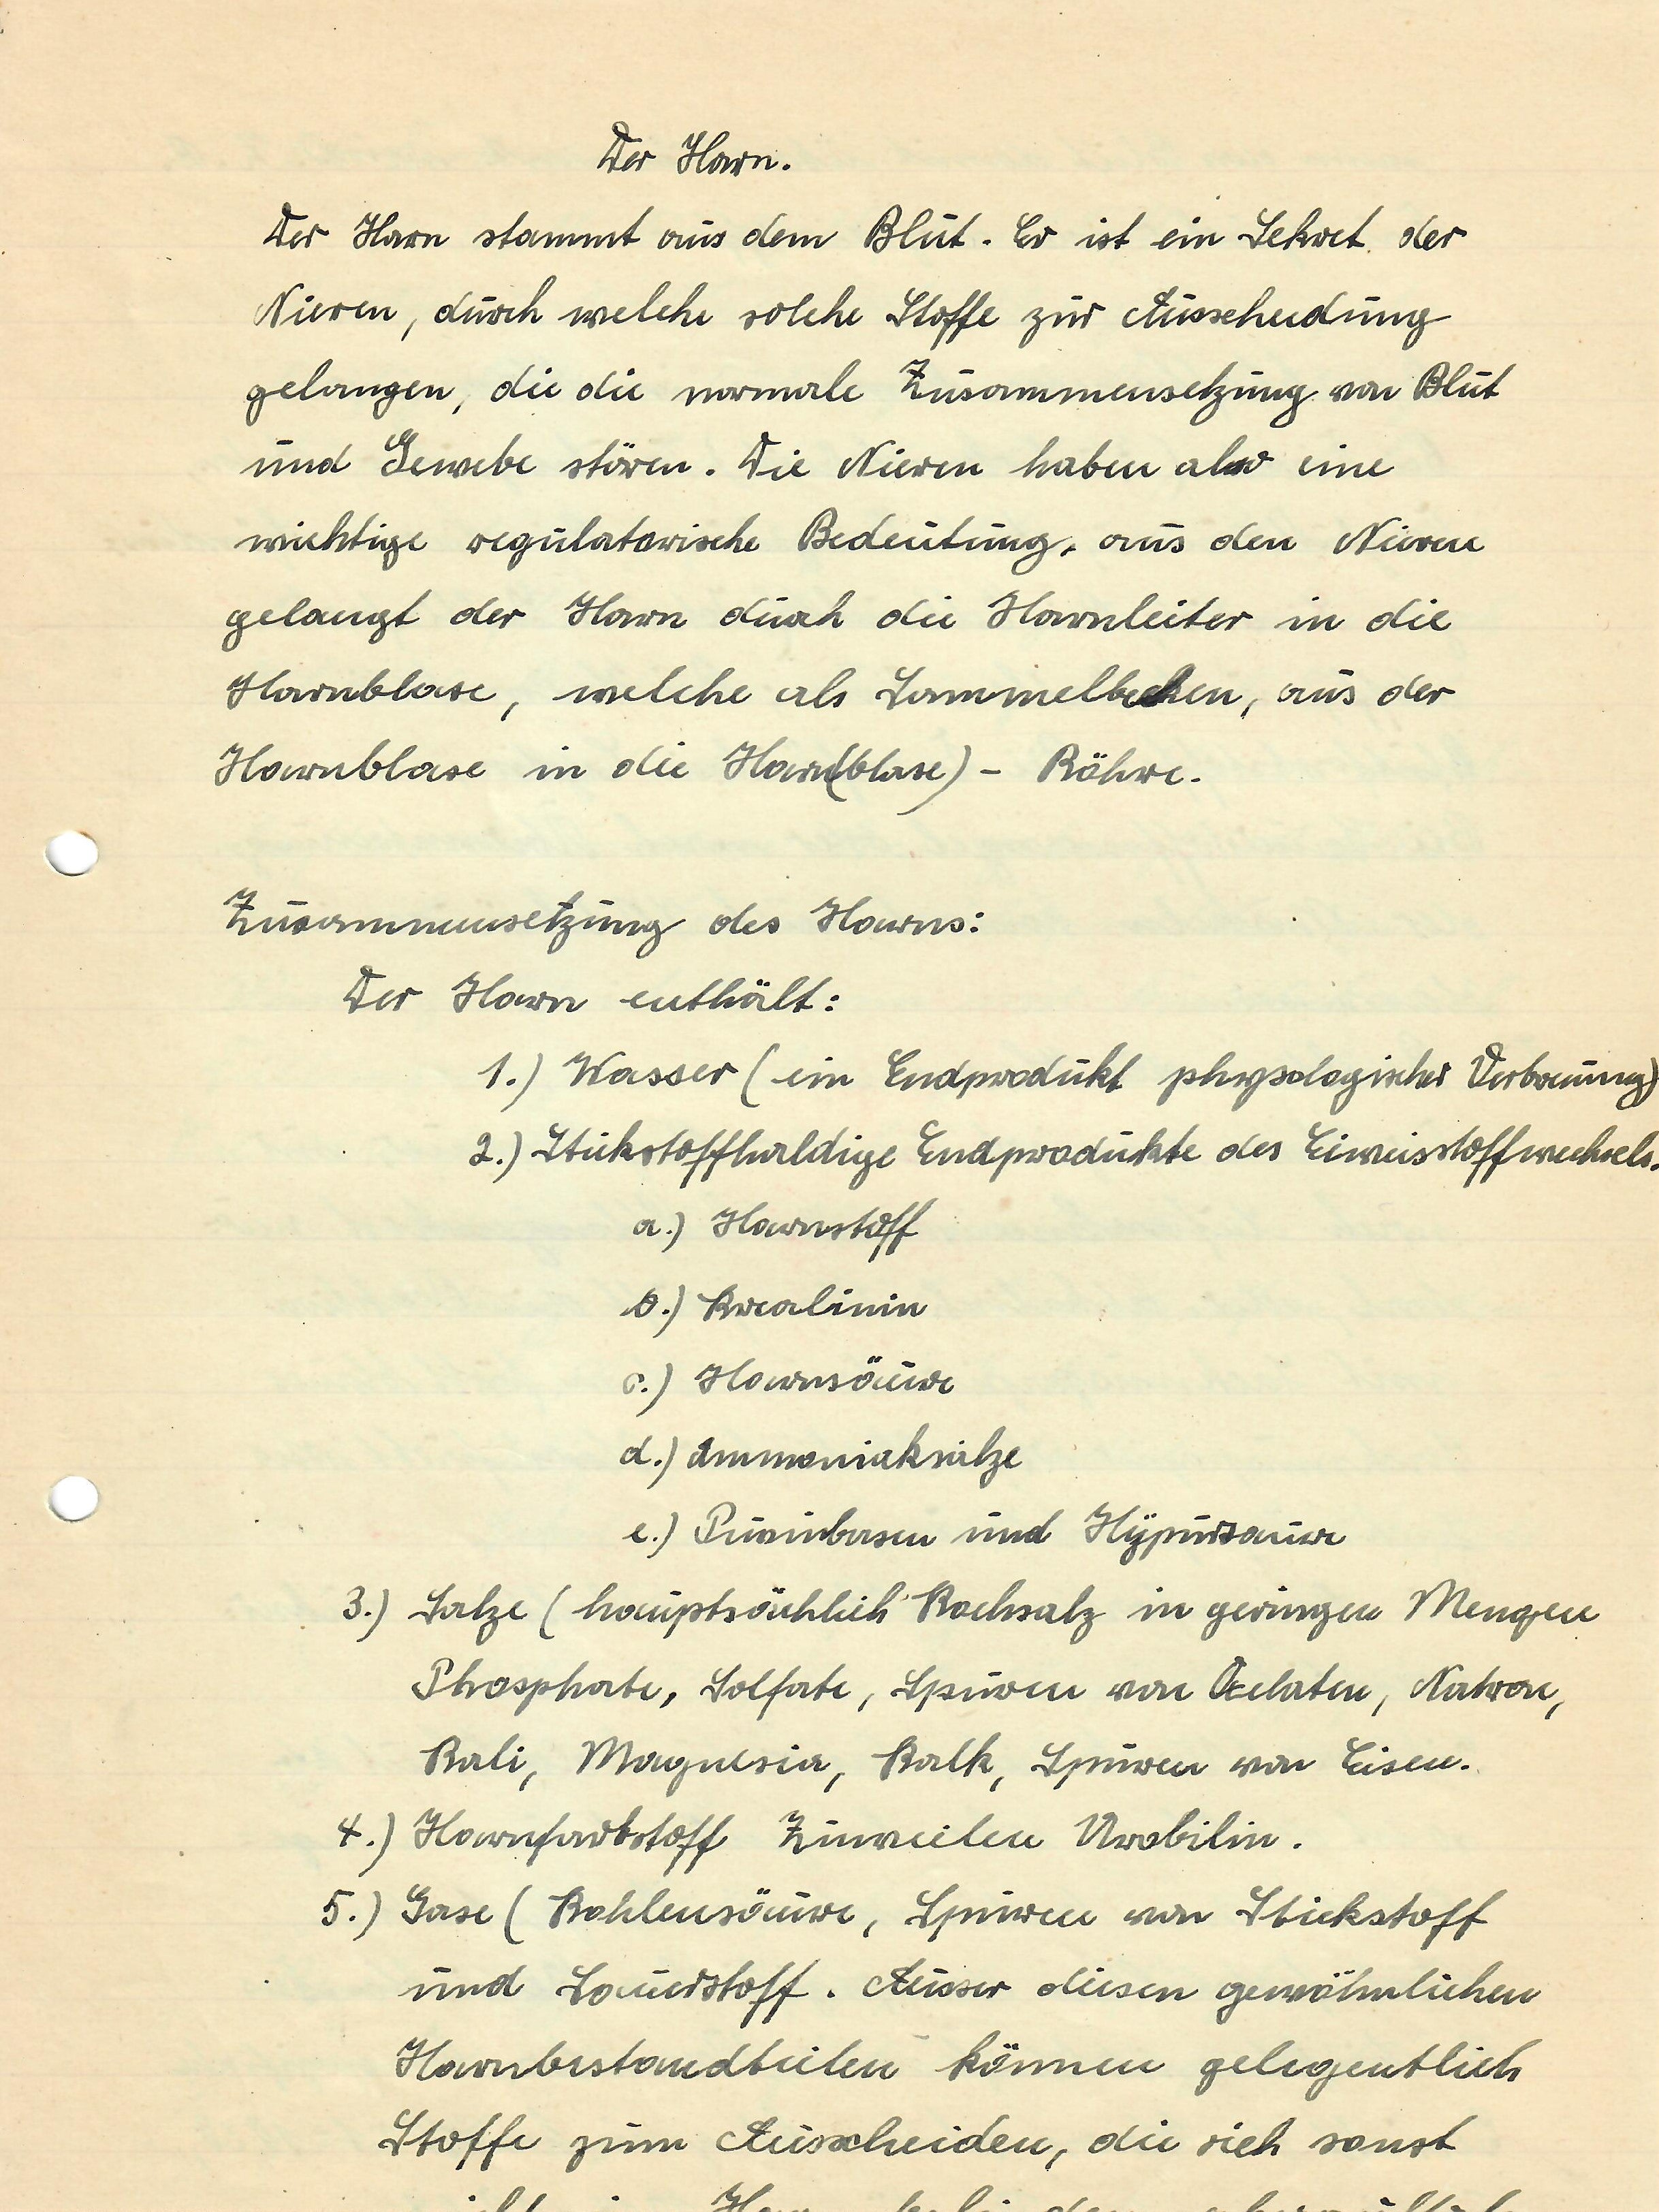 Der Harn.
Der Harn stammt aus dem Blut. Er ist ein Sekret der
Nieren, durch welche solche Stoffe zur Ausscheidung
gelangen, die die normale Zusammensetzung von Blut
und Gewebe stören. Die Nieren haben also eine
wichtige regulatorische Bedeutung, aus den Nieren
gelangt der Harn durch die Harnleiter in die
Harnblase, welche als Sammelbecken, aus der
Harnblase in die Harn(blase) - Röhre.
Zusammensetzung des Harns:
Der Harn enthält:
1.) Wasser (ein Endprodukt physologischer Verbrennung)
2.) Stickstoffhaldige Endprodukte des Eiweisstoffwechsels.
a.) Harnstoff
b.) Krealinin
c.) Harnsäure
d.) Ammoniaksalze
e.) Purinbasen und Hypursaure
3.) Salze (hauptsächlich Kochsalz in geringen Mengen
Phosphate, Solfate, Spuren von Natron,
Kali, Magnesia, Kalk, Spuren von Eisen.
4.) Harnfarbstoff Zuweilen Urobilin.
5.) Gase (Kohlensäure, Spuren von Stickstoff
und Sauerstoff. Ausser diesen gewöhnlichen
Harnbestandteilen können gelegentlich
Stoffe zum Ausscheiden, die sich sonst